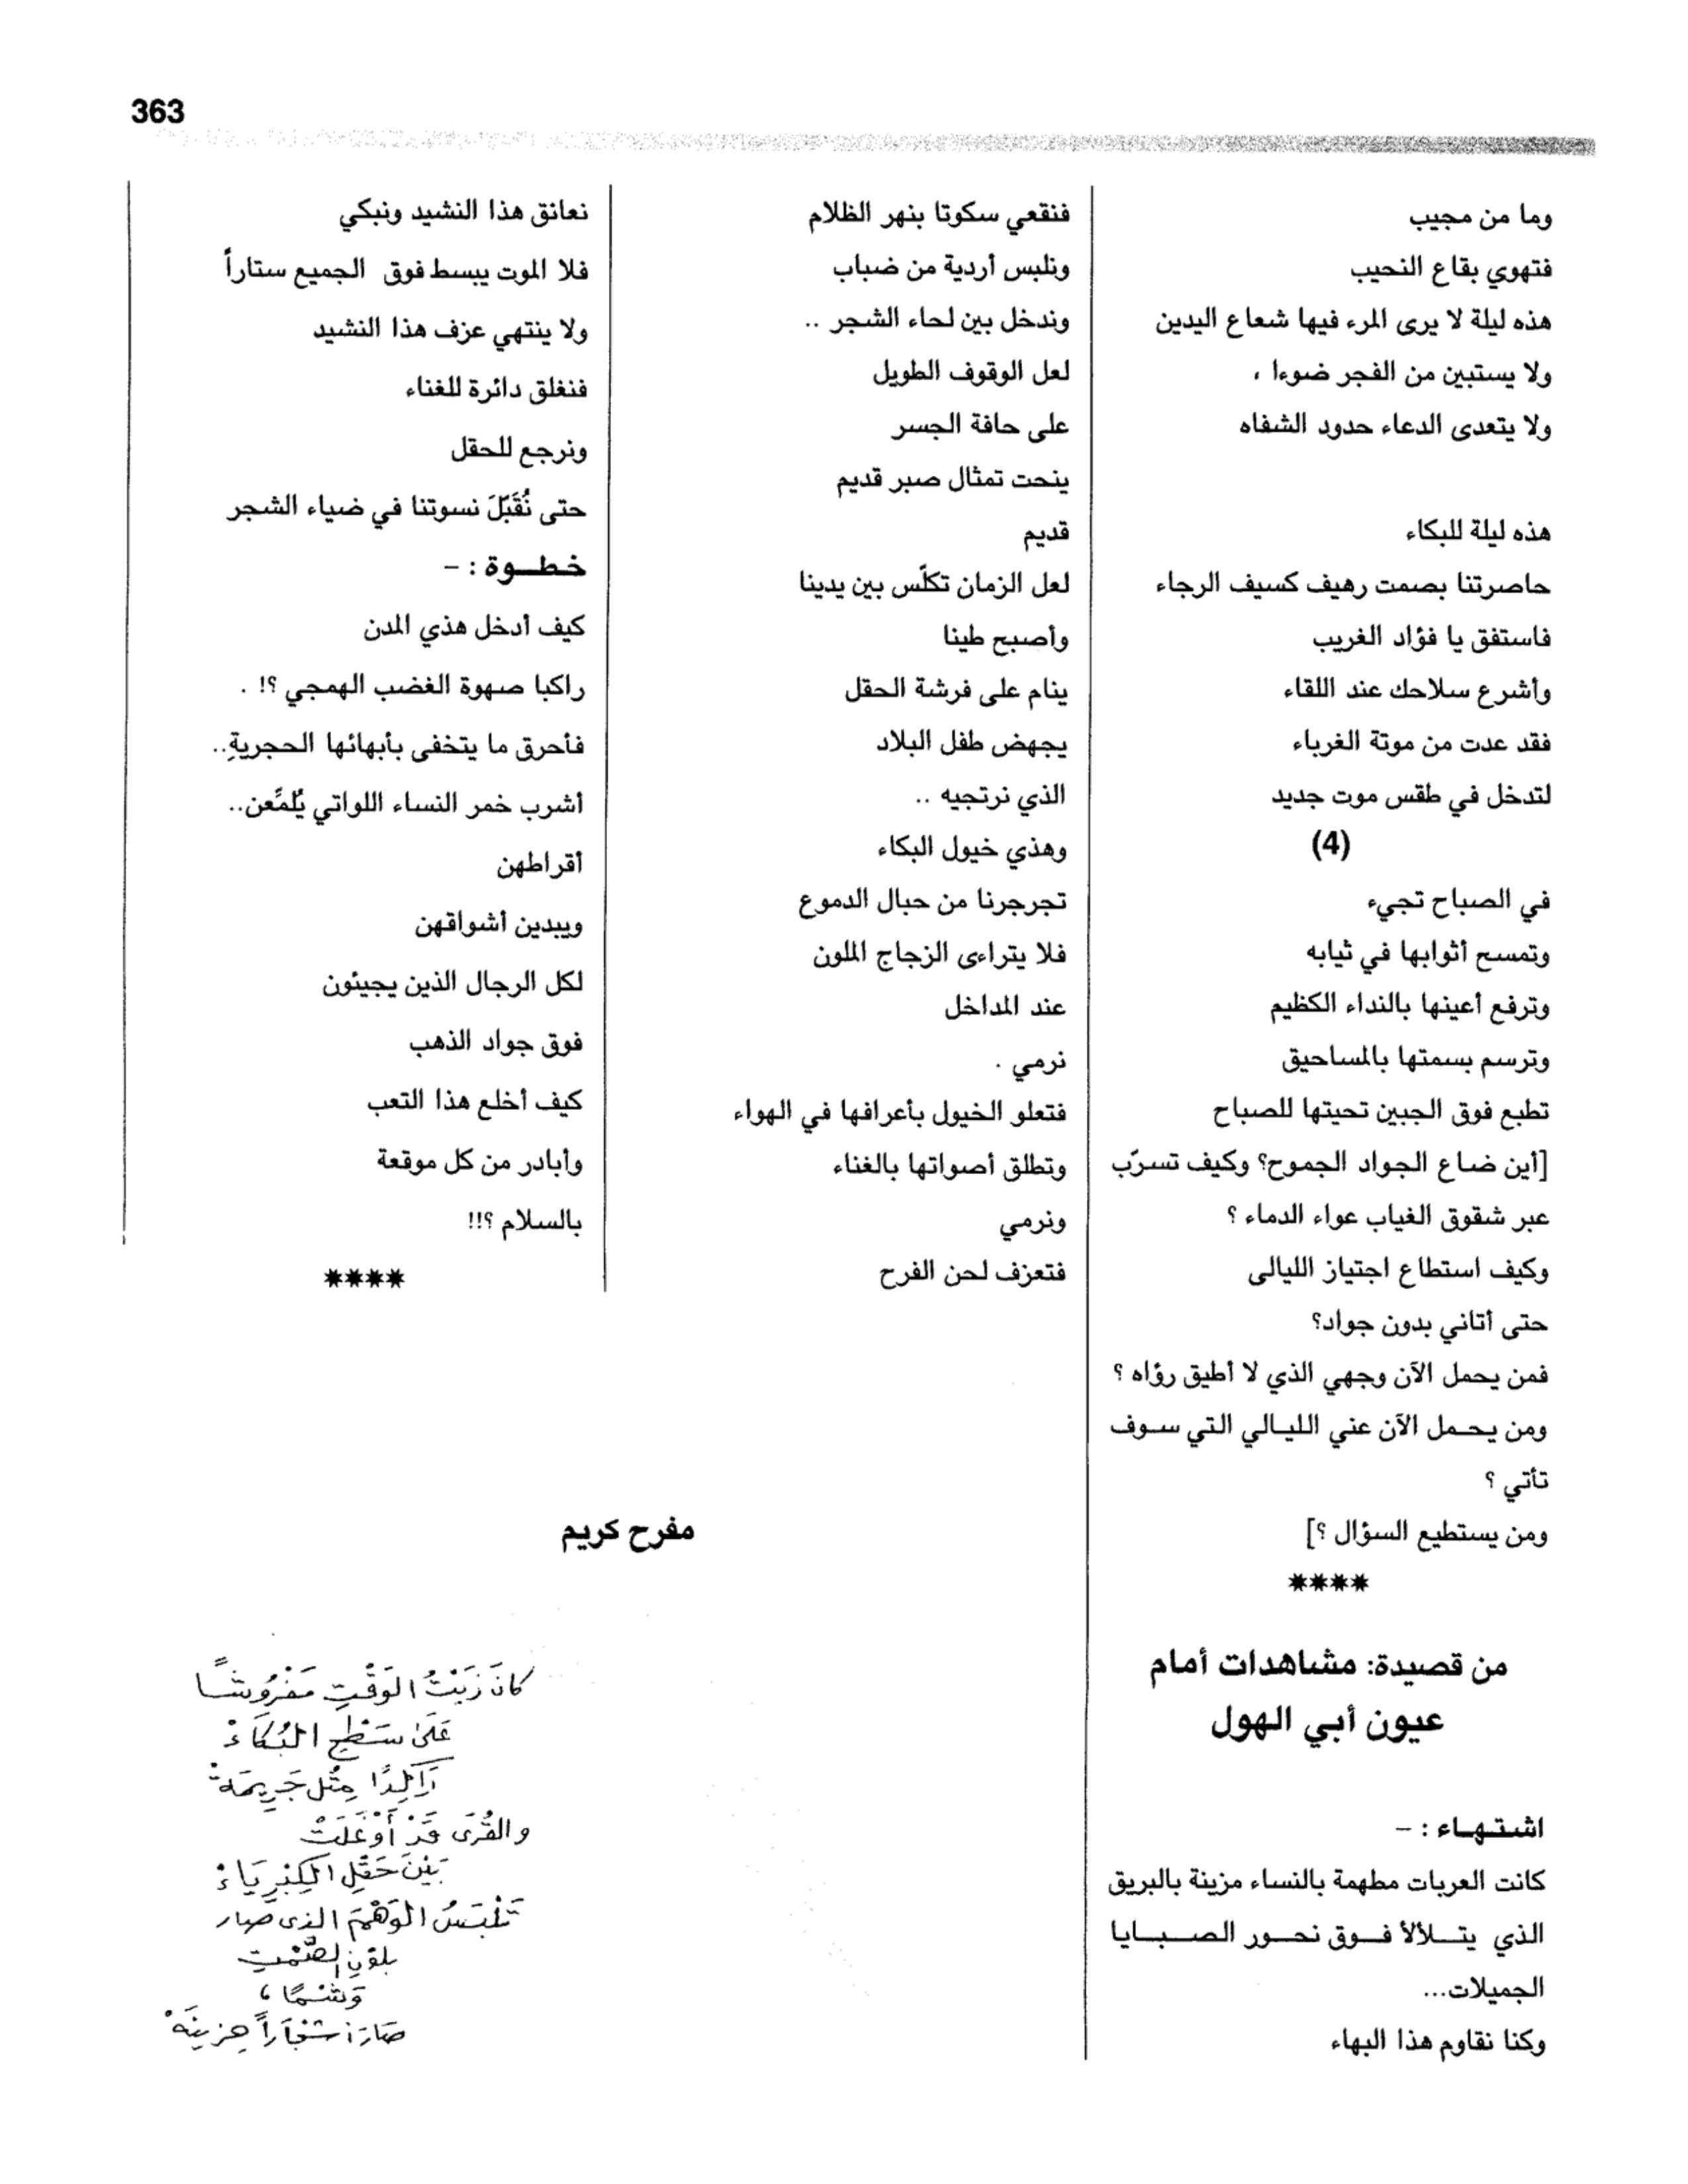 363
وما من مجيب
فتهوي بقاع النحيب
هذه ليلة لا يرى المرء فيها شعاع اليدين
ولا يستبين من الفجر ضوءا ،
ولا يتعدى الدعاء حدود الشفاه
هذه ليلة للبكاء
حاصرتنا بصمت رهيف كسيف الرجاء
فاستفق يا فؤاد الغريب
وأشرع سلاحك عند اللقاء
فقد عدت من موتة الغرباء
لتدخل في طقس موت جديد
(4)
في الصباح تجيء
وتمسح أثوابها في ثيابه
وترفع أعينها بالنداء الكظيم
وترسم بسمتها بالمساحيق
تطبع فوق الجبين تحيتها للصباح
[أين ضاع الجواد الجموح؟ وكيف تسرّب
عبر شقوق الغياب عواء الدماء ؟
وكيف استطاع اجتياز الليالى
حتى أتاني بدون جواد؟
فمن يحمل الآن وجهي الذي لا أطيق رؤاه ؟
ومن يحمل الآن عني الليالي التي سوف
تأتي ؟
ومن يستطيع السؤال ؟]
****
من قصيدة: مشاهدات أمام
عيون أبي الهول
اشتهاء : -
كانت العربات مطهمة بالنساء مزينة بالبريق
الذي يتلألأ فوق نحور الصبايا
الجميلات...
وكنا نقاوم هذا البهاء
فنقعي سكوتا بنهر الظلام
ونلبس أردية من ضباب
وندخل بين لحاء الشجر ..
لعل الوقوف الطويل
على حافة الجسر
ينحت تمثال صبر قديم
قديم
لعل الزمان تكلّس بين يدينا
وأصبح طينا
ينام على فرشة الحقل
يجهض طفل البلاد
الذي نرتجيه ..
وهذي خيول البكاء
تجرجرنا من حبال الدموع
فلا يتراءى الزجاج الملون
عند المداخل
نرمي .
فتعلو الخيول بأعرافها في الهواء
وتطلق أصواتها بالغناء
ونرمي
فتعزف لحن الفرح
نعانق هذا النشيد ونبكي
فلا الموت يبسط فوق الجميع ستاراً
ولا ينتهي عزف هذا النشيد
فنغلق دائرة للغناء
ونرجع للحقل
حتى نُقَبّلَ نسوتنا في ضياء الشجر
خطوة : -
كيف أدخل هذي المدن
راكبا صهوة الغضب الهمجي ؟! .
فأحرق ما يتخفى بأبهائها الحجريةِ..
أشرب خمر النساء اللواتي يُلمِّعن..
أقراطهن
ويبدين أشواقهن
لكل الرجال الذين يجيئون
فوق جواد الذهب
كيف أخلع هذا التعب
وأبادر من كل موقعة
بالسلام ؟!!
****
مفرح كريم
كانَ زَيْتُ الوَقْتِ مَفْرُوشًا
عَلَى سَطْحِ البُكَاءْ
رَاكِدًا مِثْلَ جَرِيمَةْ
والقُرَى قَدْ أَوْغَلَتْ
بَيْنَ حَقْلِ الكِبْرِيَاءْ
تَلْبَسُ الوَهْمَ الذى صَار
بلَوْنِ الصَّمْتِ
وَشْمًا ،
صَارَ أشْجَاراً حزينَةْ